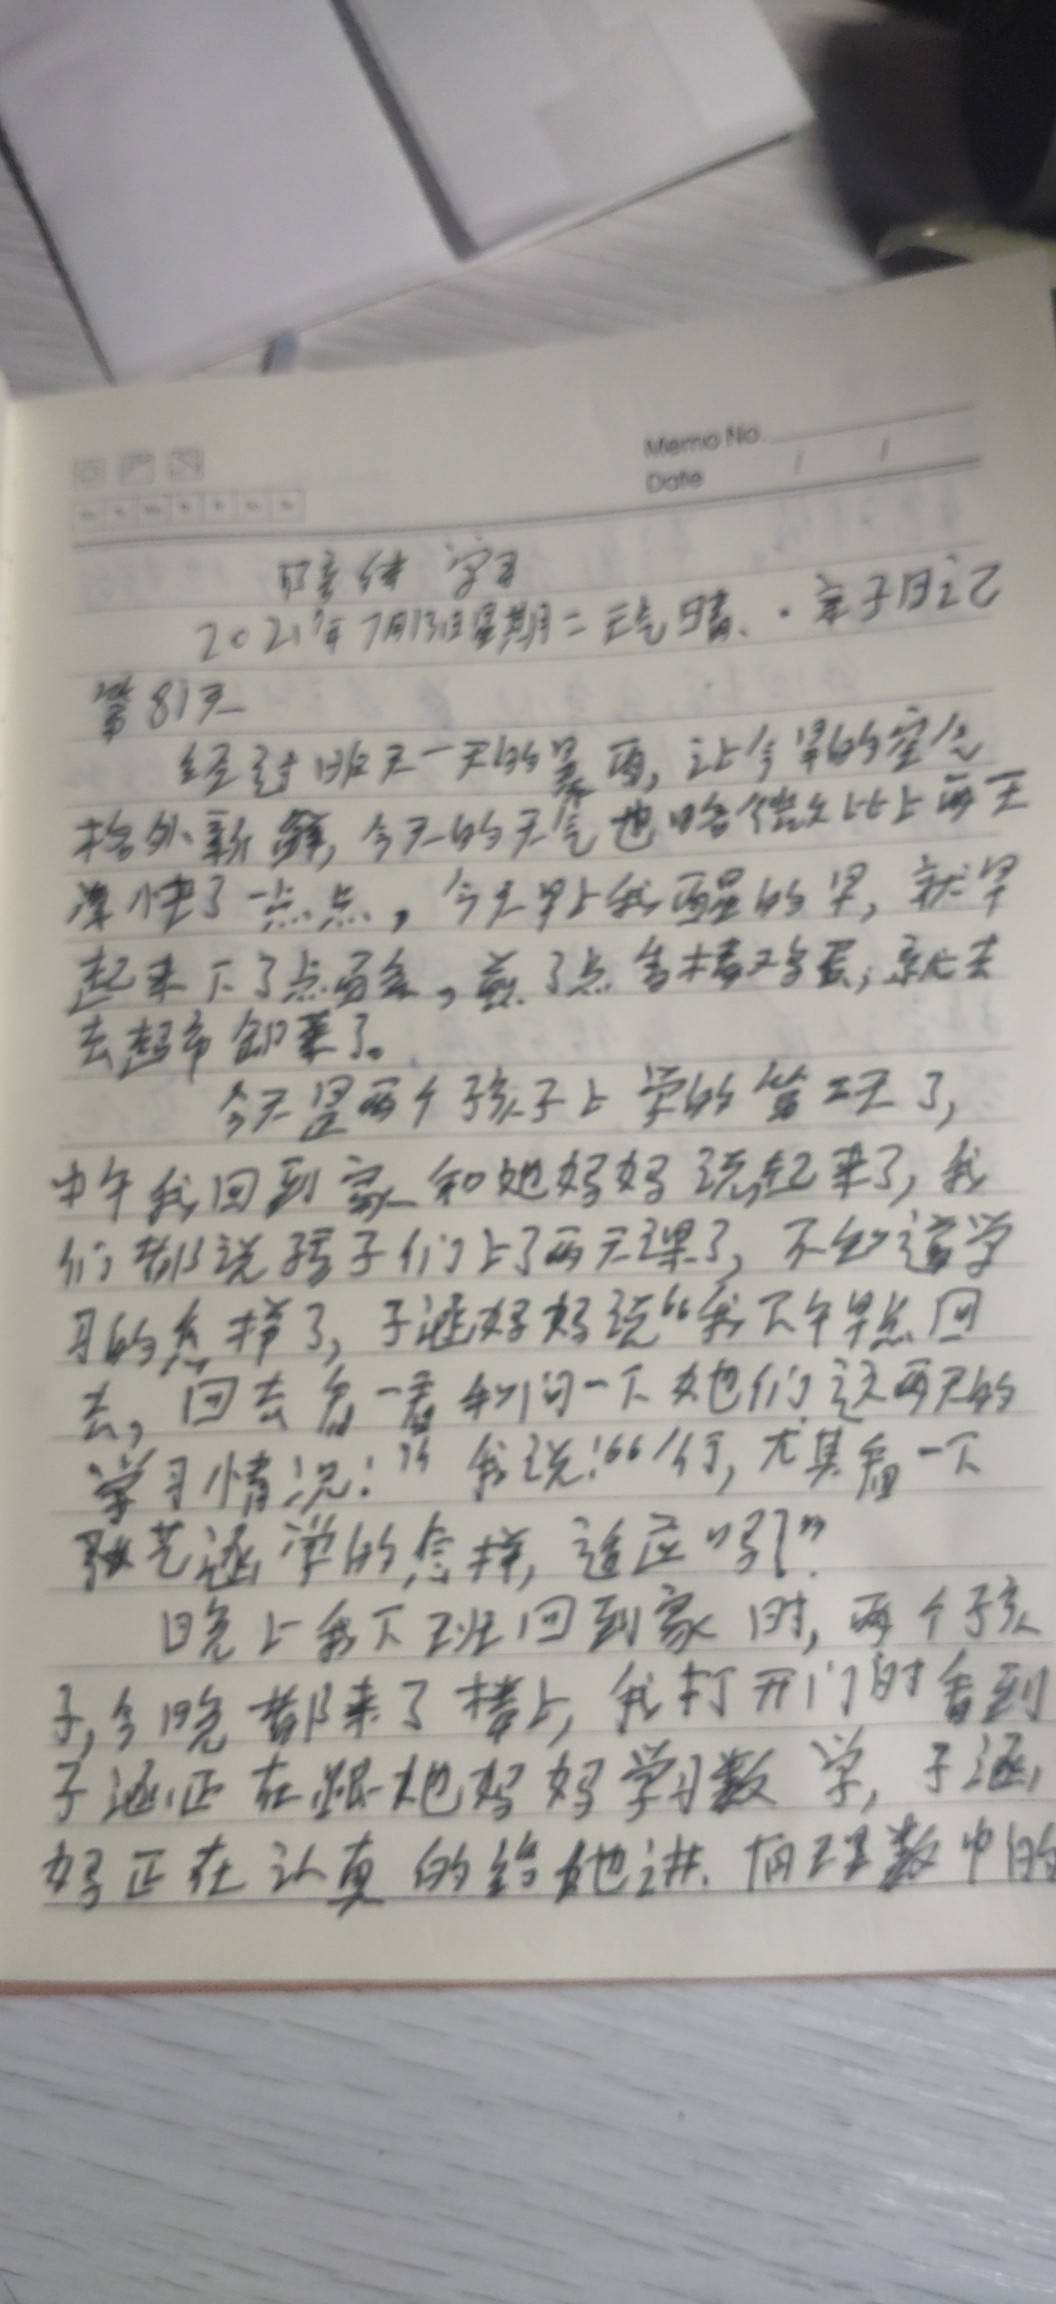 Memo No.
Date / /
陪伴 学习
2021年7月13日星期二 天气晴、·亲子日记
第81天
经过昨天一天的暴雨,让今早的空气
格外新鲜,今天的天气也略微比上两天
凉快了一点点,今天早上我醒的早,就早
起来下了点面条,煎了点鸡蛋,就去
去超市卸菜了。
今天是两个孩子上学的第二天了,
中午我回到家和她妈妈说起来了,我
们都说孩子们上了两天课了,不知道学
习的怎样了,子涵妈妈说“我下午早点回
去,回去看一看和问一下她们这两天的
学习情况:” 我说:“行,尤其看一下
张艺涵学的怎样,适应吗?”
晚上我下班回到家时,两个孩
子,今晚都来了楼上,我打开门时看到
子涵正在跟她妈妈学习数学,子涵
妈正在认真的给她讲.有理数中的